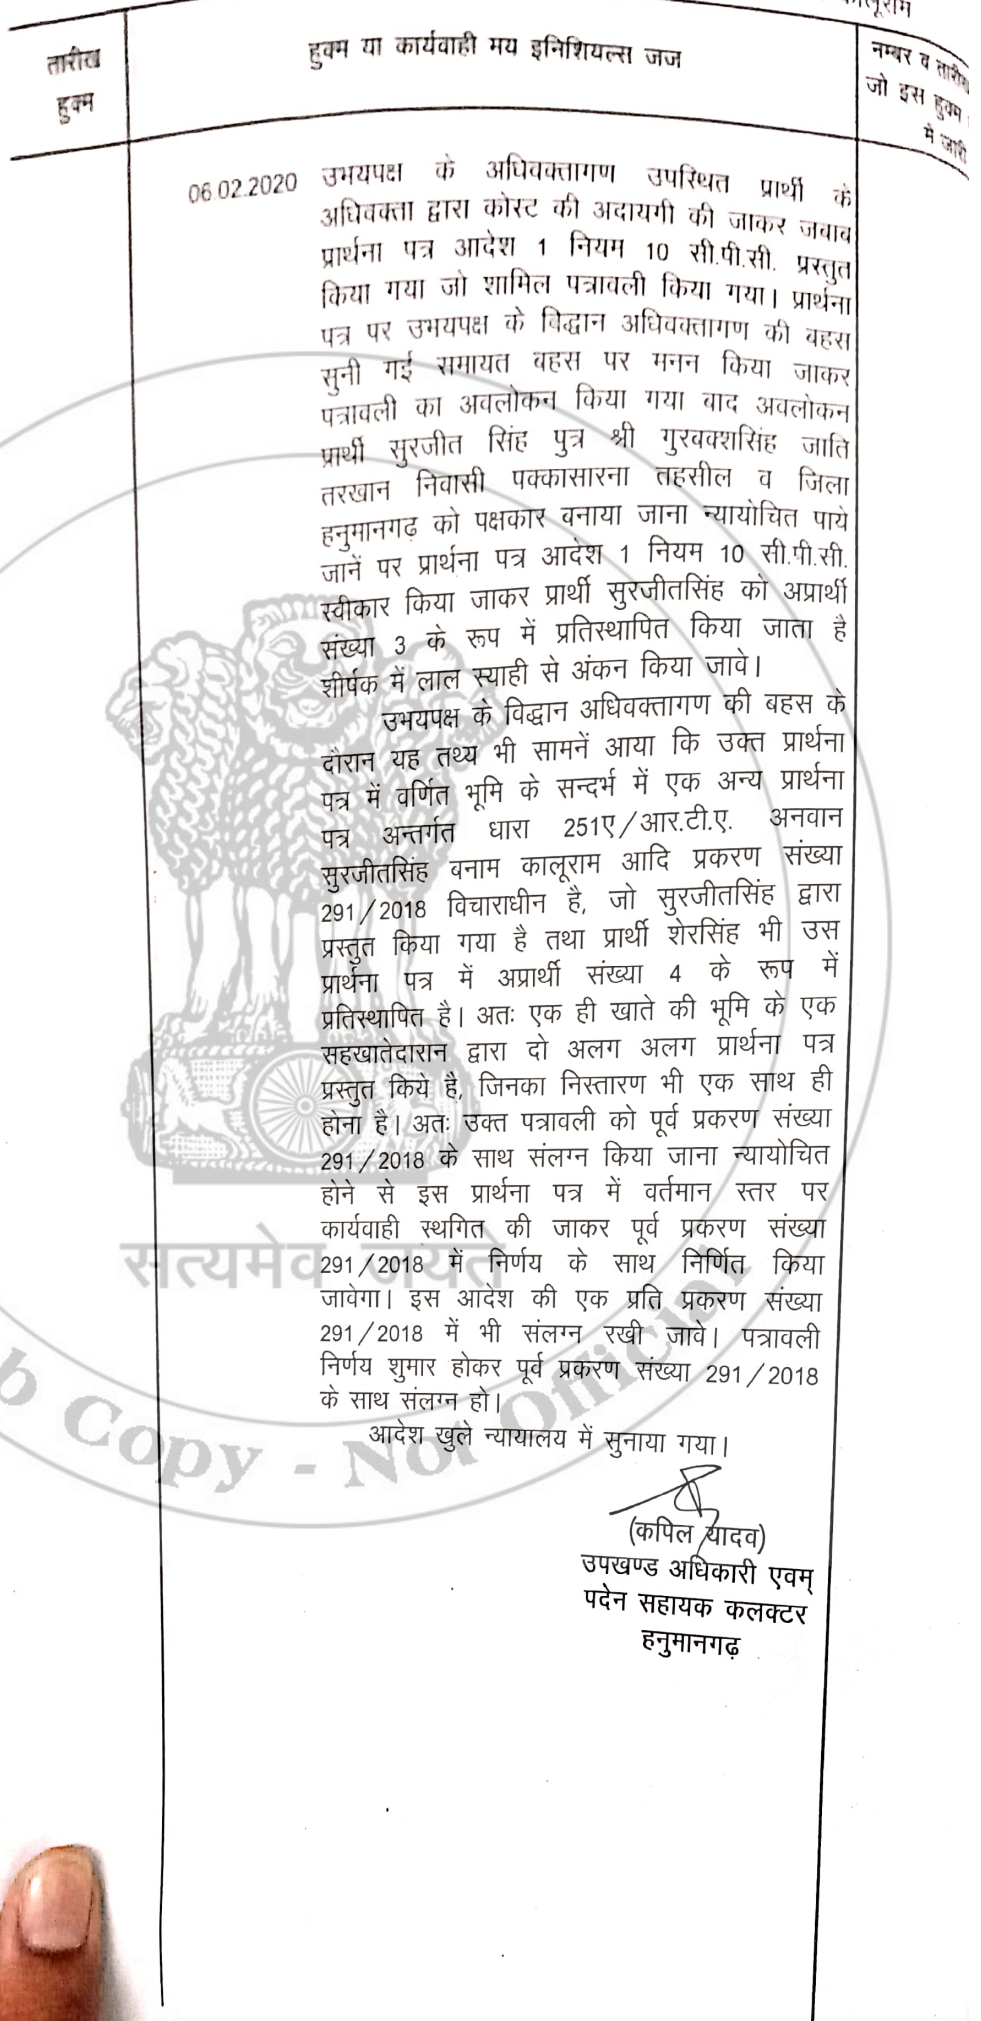 कालूराम
तारीख हुक्म
हुक्म या कार्यवाही मय इनिशियल्स जज
नम्बर व तारीख
जो इस हुक्म
मे जारी
06.02.2020
उभयपक्ष के अधिवक्तागण उपस्थित प्रार्थी के
अधिवक्ता द्वारा कोस्ट की अदायगी की जाकर जवाब
प्रार्थना पत्र आदेश 1 नियम 10 सी.पी.सी. प्रस्तुत
किया गया जो शामिल पत्रावली किया गया। प्रार्थना
पत्र पर उभयपक्ष के विद्वान अधिवक्तागण की बहस
सुनी गई समायत बहस पर मनन किया जाकर
पत्रावली का अवलोकन किया गया बाद अवलोकन
प्रार्थी सुरजीत सिंह पुत्र श्री गुरबक्शसिंह जाति
तरखान निवासी पक्कासारना तहसील व जिला
हनुमानगढ़ को पक्षकार बनाया जाना न्यायोचित पाये
जानें पर प्रार्थना पत्र आदेश 1 नियम 10 सी.पी.सी.
स्वीकार किया जाकर प्रार्थी सुरजीतसिंह को अप्रार्थी
संख्या 3 के रूप में प्रतिस्थापित किया जाता है
शीर्षक में लाल स्याही से अंकन किया जावे।
उभयपक्ष के विद्वान अधिवक्तागण की बहस के
दौरान यह तथ्य भी सामनें आया कि उक्त प्रार्थना
पत्र में वर्णित भूमि के सन्दर्भ में एक अन्य प्रार्थना
पत्र अन्तर्गत धारा 251ए/आर.टी.ए. अनवान
सुरजीतसिंह बनाम कालूराम आदि प्रकरण संख्या
291/2018 विचाराधीन है, जो सुरजीतसिंह द्वारा
प्रस्तुत किया गया है तथा प्रार्थी शेरसिंह भी उस
प्रार्थना पत्र में अप्रार्थी संख्या 4 के रूप में
प्रतिस्थापित है। अतः एक ही खाते की भूमि के एक
सहखातेदारान द्वारा दो अलग अलग प्रार्थना पत्र
प्रस्तुत किये है, जिनका निस्तारण भी एक साथ ही
होना है। अतः उक्त पत्रावली को पूर्व प्रकरण संख्या
291/2018 के साथ संलग्न किया जाना न्यायोचित
होने से इस प्रार्थना पत्र में वर्तमान स्तर पर
कार्यवाही स्थगित की जाकर पूर्व प्रकरण संख्या
291/2018 में निर्णय के साथ निर्णित किया
जावेगा। इस आदेश की एक प्रति प्रकरण संख्या
291/2018 में भी संलग्न रखी जावे। पत्रावली
निर्णय शुमार होकर पूर्व प्रकरण संख्या 291/2018
के साथ संलग्न हो।
आदेश खुले न्यायालय में सुनाया गया।
(कपिल यादव)
उपखण्ड अधिकारी एवम्
पदेन सहायक कलक्टर
हनुमानगढ़
सत्यमेव जयते
b Copy - Not Official